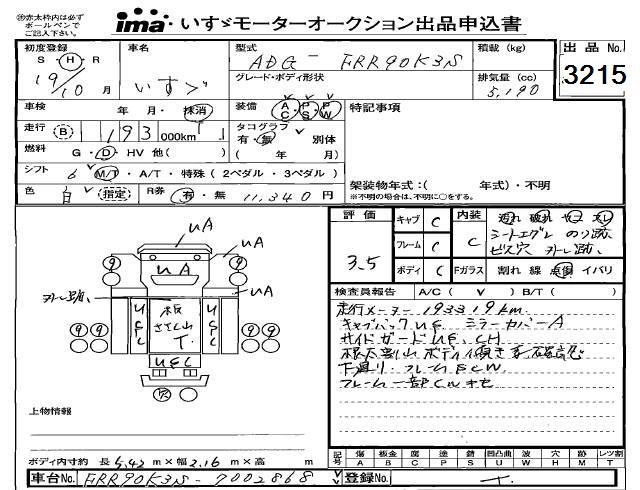 ㊟赤太枠内は必ず
ボールペンで
ご記入下さい。
ima いすゞモーターオークション出品申込書
初度登録 車名 型式 積載(kg) 出品No.
S・H・R ADG- FRR90K3S
19/10月 いすゞ グレード・ボディ形状 排気量(cc) 3215
5,190
車検 年・月・抹消 装備 AC・PS・PW 特記事項
走行 B 193 000km タコグラフ
有・無 別体
燃料 G・D・HV 他( ) ( 年 月)
シフト 6 M/T・A/T・特殊(2ペダル・3ペダル)
色 白 指定 R券 有・無 11,340円 架装物年式:( 年式)・不明
※不明の場合は、不明に○をする。
評価 キャブ C 内装 汚れ 破れ ヤケ スレ
シートエグレ のり跡
フレーム C C ビス穴 外し跡、
3.5 ボディ C Fガラス 割れ 線 点傷 イバリ
UA
UA
UA
UA
外し跡、
板
UEC
UEC
検査員報告 A/C( ∨ ) B/T( )
走行メーター 193319km
キャブバックUE ミラーカバーA
サイドガードUE、CH
下廻り・フレームECW
上物情報
ボディ内寸約 長5.42m×幅2.16m×高 m
記号 傷A 板金B 腐C 塗P 錆S 凹凸曲U 波W 穴H 跡M レンツ割
車台No. FRR90K3S-7002868 登録No.